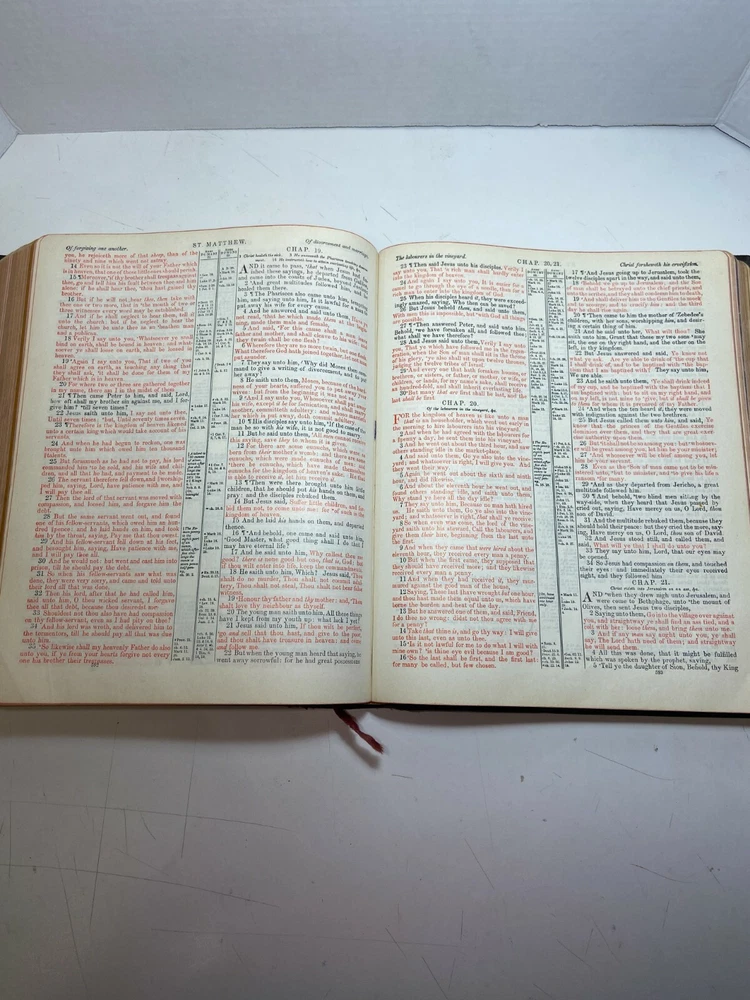 Of forgiving one another.
ST. MATTHEW.
Of divorcement and marriage.
ye, he rejoiceth more of that sheep, than of the
ninety and nine which went not astray.
14 Even so it is not the will of your Father which
is in heaven, that one of these little ones should perish.
15 ¶ Moreover, if thy brother shall trespass against
thee, go and tell him his fault between thee and him
alone: if he shall hear thee, thou hast gained thy
brother.
16 But if he will not hear thee, then take with
thee one or two more, that in the mouth of two or
three witnesses every word may be established.
17 And if he shall neglect to hear them, tell it
unto the church: but if he neglect to hear the
church, let him be unto thee as an heathen man
and a publican.
18 Verily I say unto you, Whatsoever ye shall
bind on earth, shall be bound in heaven: and what-
soever ye shall loose on earth, shall be loosed in
heaven.
19 Again I say unto you, That if two of you
shall agree on earth, as touching any thing that
they shall ask, it shall be done for them of my
Father which is in heaven.
20 For where two or three are gathered together
in my name, there am I in the midst of them.
21 ¶ Then came Peter to him, and said, Lord,
how oft shall my brother sin against me, and I for-
give him? till seven times?
22 Jesus saith unto him, I say not unto thee,
Until seven times: but, Until seventy times seven.
23 ¶ Therefore is the kingdom of heaven likened
unto a certain king which would take account of his
servants.
24 And when he had begun to reckon, one was
brought unto him which owed him ten thousand
talents.
25 But forasmuch as he had not to pay, his lord
commanded him to be sold, and his wife and chil-
dren, and all that he had, and payment to be made.
26 The servant therefore fell down, and worship-
ped him, saying, Lord, have patience with me, and
I will pay thee all.
27 Then the lord of that servant was moved with
compassion, and loosed him, and forgave him the
debt.
28 But the same servant went out, and found
one of his fellow-servants, which owed him an hun-
dred pence: and he laid hands on him, and took
him by the throat, saying, Pay me that thou owest.
29 And his fellow-servant fell down at his feet,
and besought him, saying, Have patience with me,
and I will pay thee all.
30 And he would not: but went and cast him into
prison, till he should pay the debt.
31 So when his fellow-servants saw what was
done, they were very sorry, and came and told unto
their lord all that was done.
32 Then his lord, after that he had called him,
said unto him, O thou wicked servant, I forgave
thee all that debt, because thou desiredst me:
33 Shouldest not thou also have had compassion
on thy fellow-servant, even as I had pity on thee?
34 And his lord was wroth, and delivered him to
the tormentors, till he should pay all that was due
unto him.
35 So likewise shall my heavenly Father do also
unto you, if ye from your hearts forgive not every
one his brother their trespasses.
CHAP. 19.
AND it came to pass, that when Jesus had
finished these sayings, he departed from Galilee,
and came into the coasts of Judea, beyond Jordan:
2 And great multitudes followed him, and he
healed them there.
3 ¶ The Pharisees also came unto him, tempting
him, and saying unto him, Is it lawful for a man to
put away his wife for every cause?
4 And he answered and said unto them, Have ye
not read, that he which made them at the beginning,
made them male and female,
5 And said, For this cause shall a man leave
father and mother, and shall cleave to his wife: and
they twain shall be one flesh?
6 Wherefore they are no more twain, but one flesh.
What therefore God hath joined together, let not man
put asunder.
7 They say unto him, Why did Moses then com-
mand to give a writing of divorcement, and to put
her away?
8 He saith unto them, Moses, because of the hard-
ness of your hearts, suffered you to put away your
wives: but from the beginning it was not so.
9 And I say unto you, Whosoever shall put away
his wife, except it be for fornication, and shall marry
another, committeth adultery: and whoso marrieth
her which is put away, doth commit adultery.
10 ¶ His disciples say unto him, If the case of the
man be so with his wife, it is not good to marry.
11 But he said unto them, All men cannot receive
this saying, save they to whom it is given.
12 For there are some eunuchs, which were so
born from their mother's womb: and there are some
eunuchs, which were made eunuchs of men: and
there be eunuchs, which have made themselves
eunuchs for the kingdom of heaven's sake. He that
is able to receive it, let him receive it.
13 ¶ Then were there brought unto him little
children, that he should put his hands on them, and
pray: and the disciples rebuked them.
14 But Jesus said, Suffer little children, and for-
bid them not, to come unto me: for of such is the
kingdom of heaven.
15 And he laid his hands on them, and departed
thence.
16 ¶ And behold, one came and said unto him,
Good Master, what good thing shall I do that I
may have eternal life?
17 And he said unto him, Why callest thou me
good? there is none good but one, that is, God: but
if thou wilt enter into life, keep the commandments.
18 He saith unto him, Which? Jesus said, Thou
shalt do no murder, Thou shalt not commit adul-
tery, Thou shalt not steal, Thou shalt not bear false
witness,
19 Honour thy father and thy mother: and, Thou
shalt love thy neighbour as thyself.
20 The young man saith unto him, All these things
have I kept from my youth up: what lack I yet?
21 Jesus said unto him, If thou wilt be perfect,
go and sell that thou hast, and give to the poor,
and thou shalt have treasure in heaven: and come
and follow me.
22 But when the young man heard that saying, he
went away sorrowful: for he had great possessions.
The labourers in the vineyard.
CHAP. 20, 21.
Christ foretelleth his crucifixion.
23 ¶ Then said Jesus unto his disciples, Verily I
say unto you, That a rich man shall hardly enter
into the kingdom of heaven.
24 And again I say unto you, It is easier for a
camel to go through the eye of a needle, than for a
rich man to enter into the kingdom of God.
25 When his disciples heard it, they were exceed-
ingly amazed, saying, Who then can be saved?
26 But Jesus beheld them, and said unto them,
With men this is impossible, but with God all things
are possible.
27 ¶ Then answered Peter, and said unto him,
Behold, we have forsaken all, and followed thee;
what shall we have therefore?
28 And Jesus said unto them, Verily I say unto
you, That ye which have followed me in the regen-
eration, when the Son of man shall sit in the throne
of his glory, ye also shall sit upon twelve thrones,
judging the twelve tribes of Israel.
29 And every one that hath forsaken houses, or
brethren, or sisters, or father, or mother, or wife, or
children, or lands, for my name's sake, shall receive
an hundred-fold, and shall inherit everlasting life.
30 But many that are first shall be last, and the
last shall be first.
CHAP. 20.
Of the labourers in the vineyard, &c.
FOR the kingdom of heaven is like unto a man
that is an householder, which went out early in
the morning to hire labourers into his vineyard.
2 And when he had agreed with the labourers for
a penny a day, he sent them into his vineyard.
3 And he went out about the third hour, and saw
others standing idle in the market-place,
4 And said unto them, Go ye also into the vine-
yard; and whatsoever is right, I will give you. And
they went their way.
5 Again he went out about the sixth and ninth
hour, and did likewise.
6 And about the eleventh hour he went out, and
found others standing idle, and saith unto them,
Why stand ye here all the day idle?
7 They say unto him, Because no man hath hired
us. He saith unto them, Go ye also into the vine-
yard; and whatsoever is right, that shall ye receive.
8 So when even was come, the lord of the vine-
yard saith unto his steward, Call the labourers, and
give them their hire, beginning from the last unto
the first.
9 And when they came that were hired about the
eleventh hour, they received every man a penny.
10 But when the first came, they supposed that
they should have received more; and they likewise
received every man a penny.
11 And when they had received it, they mur-
mured against the good man of the house,
12 Saying, These last have wrought but one hour,
and thou hast made them equal unto us, which have
borne the burden and heat of the day.
13 But he answered one of them, and said, Friend,
I do thee no wrong: didst not thou agree with me
for a penny?
14 Take that thine is, and go thy way: I will give
unto this last, even as unto thee.
15 Is it not lawful for me to do what I will with
mine own? is thine eye evil because I am good?
16 So the last shall be first, and the first last:
for many be called, but few chosen.
17 ¶ And Jesus going up to Jerusalem, took the
twelve disciples apart in the way, and said unto them,
18 Behold, we go up to Jerusalem; and the Son
of man shall be betrayed unto the chief priests, and
unto the scribes, and they shall condemn him to death,
19 And shall deliver him to the Gentiles to mock,
and to scourge, and to crucify him: and the third
day he shall rise again.
20 ¶ Then came to him the mother of Zebedee's
children, with her sons, worshipping him, and desir-
ing a certain thing of him.
21 And he said unto her, What wilt thou? She
saith unto him, Grant that these my two sons may
sit, the one on thy right hand, and the other on the
left, in thy kingdom.
22 But Jesus answered and said, Ye know not
what ye ask. Are ye able to drink of the cup that
I shall drink of, and to be baptized with the bap-
tism that I am baptized with? They say unto him,
We are able.
23 And he saith unto them, Ye shall drink indeed
of my cup, and be baptized with the baptism that I
am baptized with: but to sit on my right hand, and
on my left, is not mine to give, but it shall be given
to them for whom it is prepared of my Father.
24 And when the ten heard it, they were moved
with indignation against the two brethren.
25 But Jesus called them unto him, and said, Ye
know that the princes of the Gentiles exercise
dominion over them, and they that are great exer-
cise authority upon them.
26 But it shall not be so among you: but whosoever
will be great among you, let him be your minister;
27 And whosoever will be chief among you, let
him be your servant:
28 Even as the Son of man came not to be min-
istered unto, but to minister, and to give his life a
ransom for many.
29 And as they departed from Jericho, a great
multitude followed him.
30 ¶ And behold, two blind men sitting by the
wayside, when they heard that Jesus passed by,
cried out, saying, Have mercy on us, O Lord, thou
son of David.
31 And the multitude rebuked them, because they
should hold their peace: but they cried the more, say-
ing, Have mercy on us, O Lord, thou son of David.
32 And Jesus stood still, and called them, and
said, What will ye that I shall do unto you?
33 They say unto him, Lord, that our eyes may
be opened.
34 So Jesus had compassion on them, and touched
their eyes: and immediately their eyes received
sight, and they followed him.
CHAP. 21.
AND when they drew nigh unto Jerusalem, and
were come to Bethphage, unto the mount of
Olives, then sent Jesus two disciples,
2 Saying unto them, Go into the village over against
you, and straightway ye shall find an ass tied, and a
colt with her: loose them, and bring them unto me.
3 And if any man say aught unto you, ye shall
say, The Lord hath need of them; and straightway
he will send them.
4 All this was done, that it might be fulfilled
which was spoken by the prophet, saying,
5 Tell ye the daughter of Sion, Behold, thy King